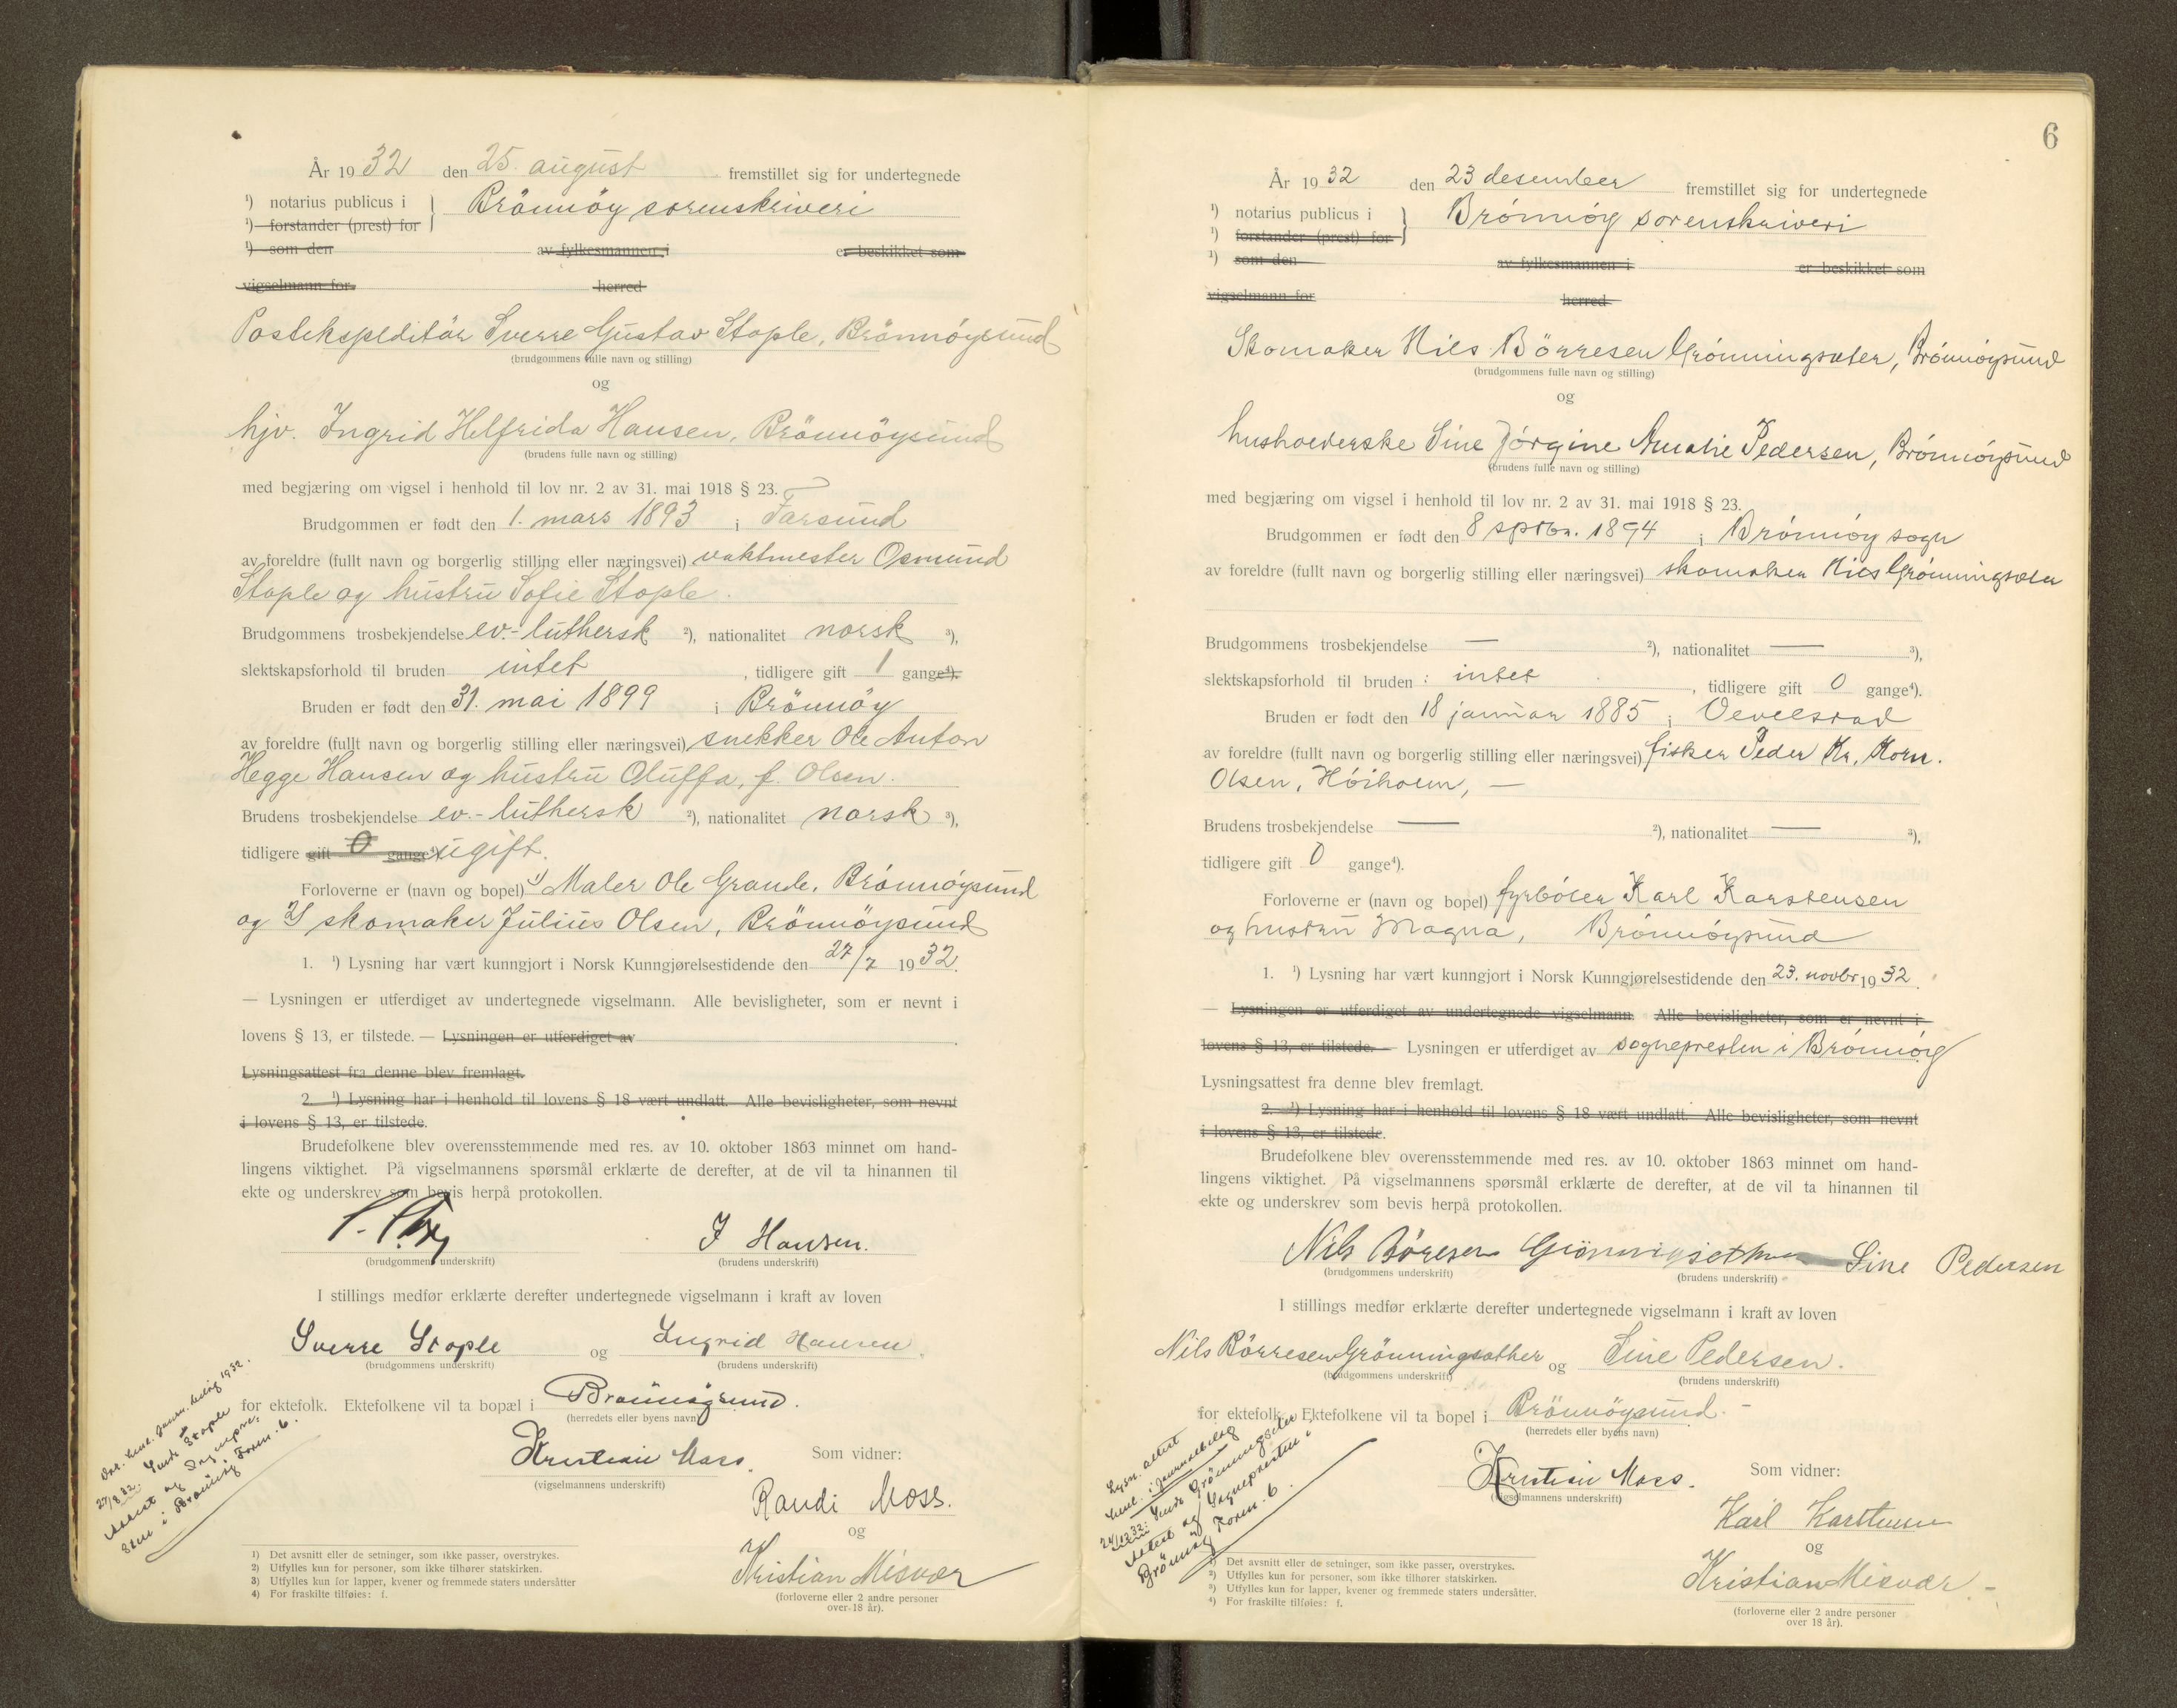 År 1932 den 25. august fremstillet sig for undertegnede
¹) notarius publicus i } Brönnöy sorenskriveri
¹) forstander (prest) for
¹) som den av fylkesmannen i er beskikket som
vigselmann for herred
Postekspeditör Sverre Gustav Stople, Brönnöysund
(brudgommens fulle navn og stilling)
og
hjv. Ingrid Helfrida Hansen, Brönnöysund
(brudens fulle navn og stilling)
med begjæring om vigsel i henhold til lov nr. 2 av 31. mai 1918 § 23.
Brudgommen er født den 1. mars 1893 i Farsund
av foreldre (fullt navn og borgerlig stilling eller næringsvei) vaktmester Osmund
Stople og hustru Sofie Stople.
Brudgommens trosbekjendelse ev.-luthersk ²), nationalitet norsk ³),
slektskapsforhold til bruden intet, tidligere gift 1 gange⁴).
Bruden er født den 31. mai 1899 i Brönnöy
av foreldre (fullt navn og borgerlig stilling eller næringsvei) snekker Ole Anton
Hegge Hansen og hustru Oluffa, f. Olsen.
Brudens trosbekjendelse ev.-luthersk ²), nationalitet norsk ³),
tidligere gift 0 gange⁴) ugift.
Forloverne er (navn og bopel) 1) Maler Ole Grande, Brönnöysund
og 2) skomaker Julius Olsen, Brönnöysund
1. ¹) Lysning har vært kunngjort i Norsk Kunngjørelsestidende den 27/7 1932.
— Lysningen er utferdiget av undertegnede vigselmann. Alle bevisligheter, som er nevnt i
lovens § 13, er tilstede. — Lysningen er utferdiget av .
Lysningsattest fra denne blev fremlagt.
2. ¹) Lysning har i henhold til lovens § 18 vært undlatt. Alle bevisligheter, som nevnt
i lovens § 13, er tilstede.
Brudefolkene blev overensstemmende med res. av 10. oktober 1863 minnet om hand-
lingens viktighet. På vigselmannens spørsmål erklærte de derefter, at de vil ta hinannen til
ekte og underskrev som bevis herpå protokollen.
I Hansen.
(brudgommens underskrift) (brudens underskrift)
I stillings medfør erklærte derefter undertegnede vigselmann i kraft av loven
Sverre Stople og Ingrid Hansen.
(brudgommens underskrift) (brudens underskrift)
for ektefolk. Ektefolkene vil ta bopæl i Brönnöysund.
(herredets eller byens navn)
Kristian Moss. Som vidner:
(vigselmannens underskrift)
Randi Moss.
og
Kristian Misvær
(forloverne eller 2 andre personer
over 18 år).
27/8 32. Sendt Stople
attest og Sognepre-
sten i Brönnöy Form. 6.
1) Det avsnitt eller de setninger, som ikke passer, overstrykes.
2) Utfylles kun for personer, som ikke tilhører statskirken.
3) Utfylles kun for lapper, kvener og fremmede staters undersåtter
4) For fraskilte tilføies: f.
6
År 1932 den 23 desember fremstillet sig for undertegnede
¹) notarius publicus i } Brónnóy sorenskriveri
¹) forstander (prest) for
¹) som den av fylkesmannen i er beskikket som
vigselmann for herred
Skomaker Nils Börresen Grónningsæter, Brónnóysund
(brudgommens fulle navn og stilling)
og
husholderske Sine Jórgine Amalie Pedersen, Brónnóysund
(brudens fulle navn og stilling)
med begjæring om vigsel i henhold til lov nr. 2 av 31. mai 1918 § 23.
Brudgommen er født den 8 sptbr. 1894 i Brónnóy sogn
av foreldre (fullt navn og borgerlig stilling eller næringsvei) skomaker Nils Grónningsæter
Brudgommens trosbekjendelse — ²), nationalitet — ³),
slektskapsforhold til bruden : intet, tidligere gift 0 gange⁴).
Bruden er født den 18 januar 1885 i Vevelstad
av foreldre (fullt navn og borgerlig stilling eller næringsvei) fisker Peder Kr. Korn.
Olsen, Hóiholm, —
Brudens trosbekjendelse — ²), nationalitet — ³),
tidligere gift 0 gange⁴).
Forloverne er (navn og bopel) fyrbóter Karl Karstensen
og hustru Magna, Brónnóysund
1. ¹) Lysning har vært kunngjort i Norsk Kunngjørelsestidende den 23. novbr 1932.
— Lysningen er utferdiget av undertegnede vigselmann. Alle bevisligheter, som er nevnt i
lovens § 13, er tilstede. — Lysningen er utferdiget av sognepresten i Brónnóy
Lysningsattest fra denne blev fremlagt.
2. ¹) Lysning har i henhold til lovens § 18 vært undlatt. Alle bevisligheter, som nevnt
i lovens § 13, er tilstede.
Brudefolkene blev overensstemmende med res. av 10. oktober 1863 minnet om hand-
lingens viktighet. På vigselmannens spørsmål erklærte de derefter, at de vil ta hinannen til
ekte og underskrev som bevis herpå protokollen.
Nils Böresen Sine Pedersen
(brudgommens underskrift) (brudens underskrift)
I stillings medfør erklærte derefter undertegnede vigselmann i kraft av loven
Nils Börresen Grönningsæther og Sine Pedersen.
(brudgommens underskrift) (brudens underskrift)
for ektefolk. Ektefolkene vil ta bopel i Brönnöysund. -
(herredets eller byens navn)
Kristian Moss. Som vidner:
(vigselmannens underskrift)
Karl Karstensen
og
Kristian Misvær -
(forloverne eller 2 andre personer
over 18 år).
Lysn. attest
henl. i journalbilag
24/12 32: Sendt Grönningsæter
attest og Sognepresten i
Brönnöy Form. 6.
¹) Det avsnitt eller de setninger, som ikke passer, overstrykes.
²) Utfylles kun for personer, som ikke tilhører statskirken.
³) Utfylles kun for lapper, kvener og fremmede staters undersåtter.
⁴) For fraskilte tilføies: f.